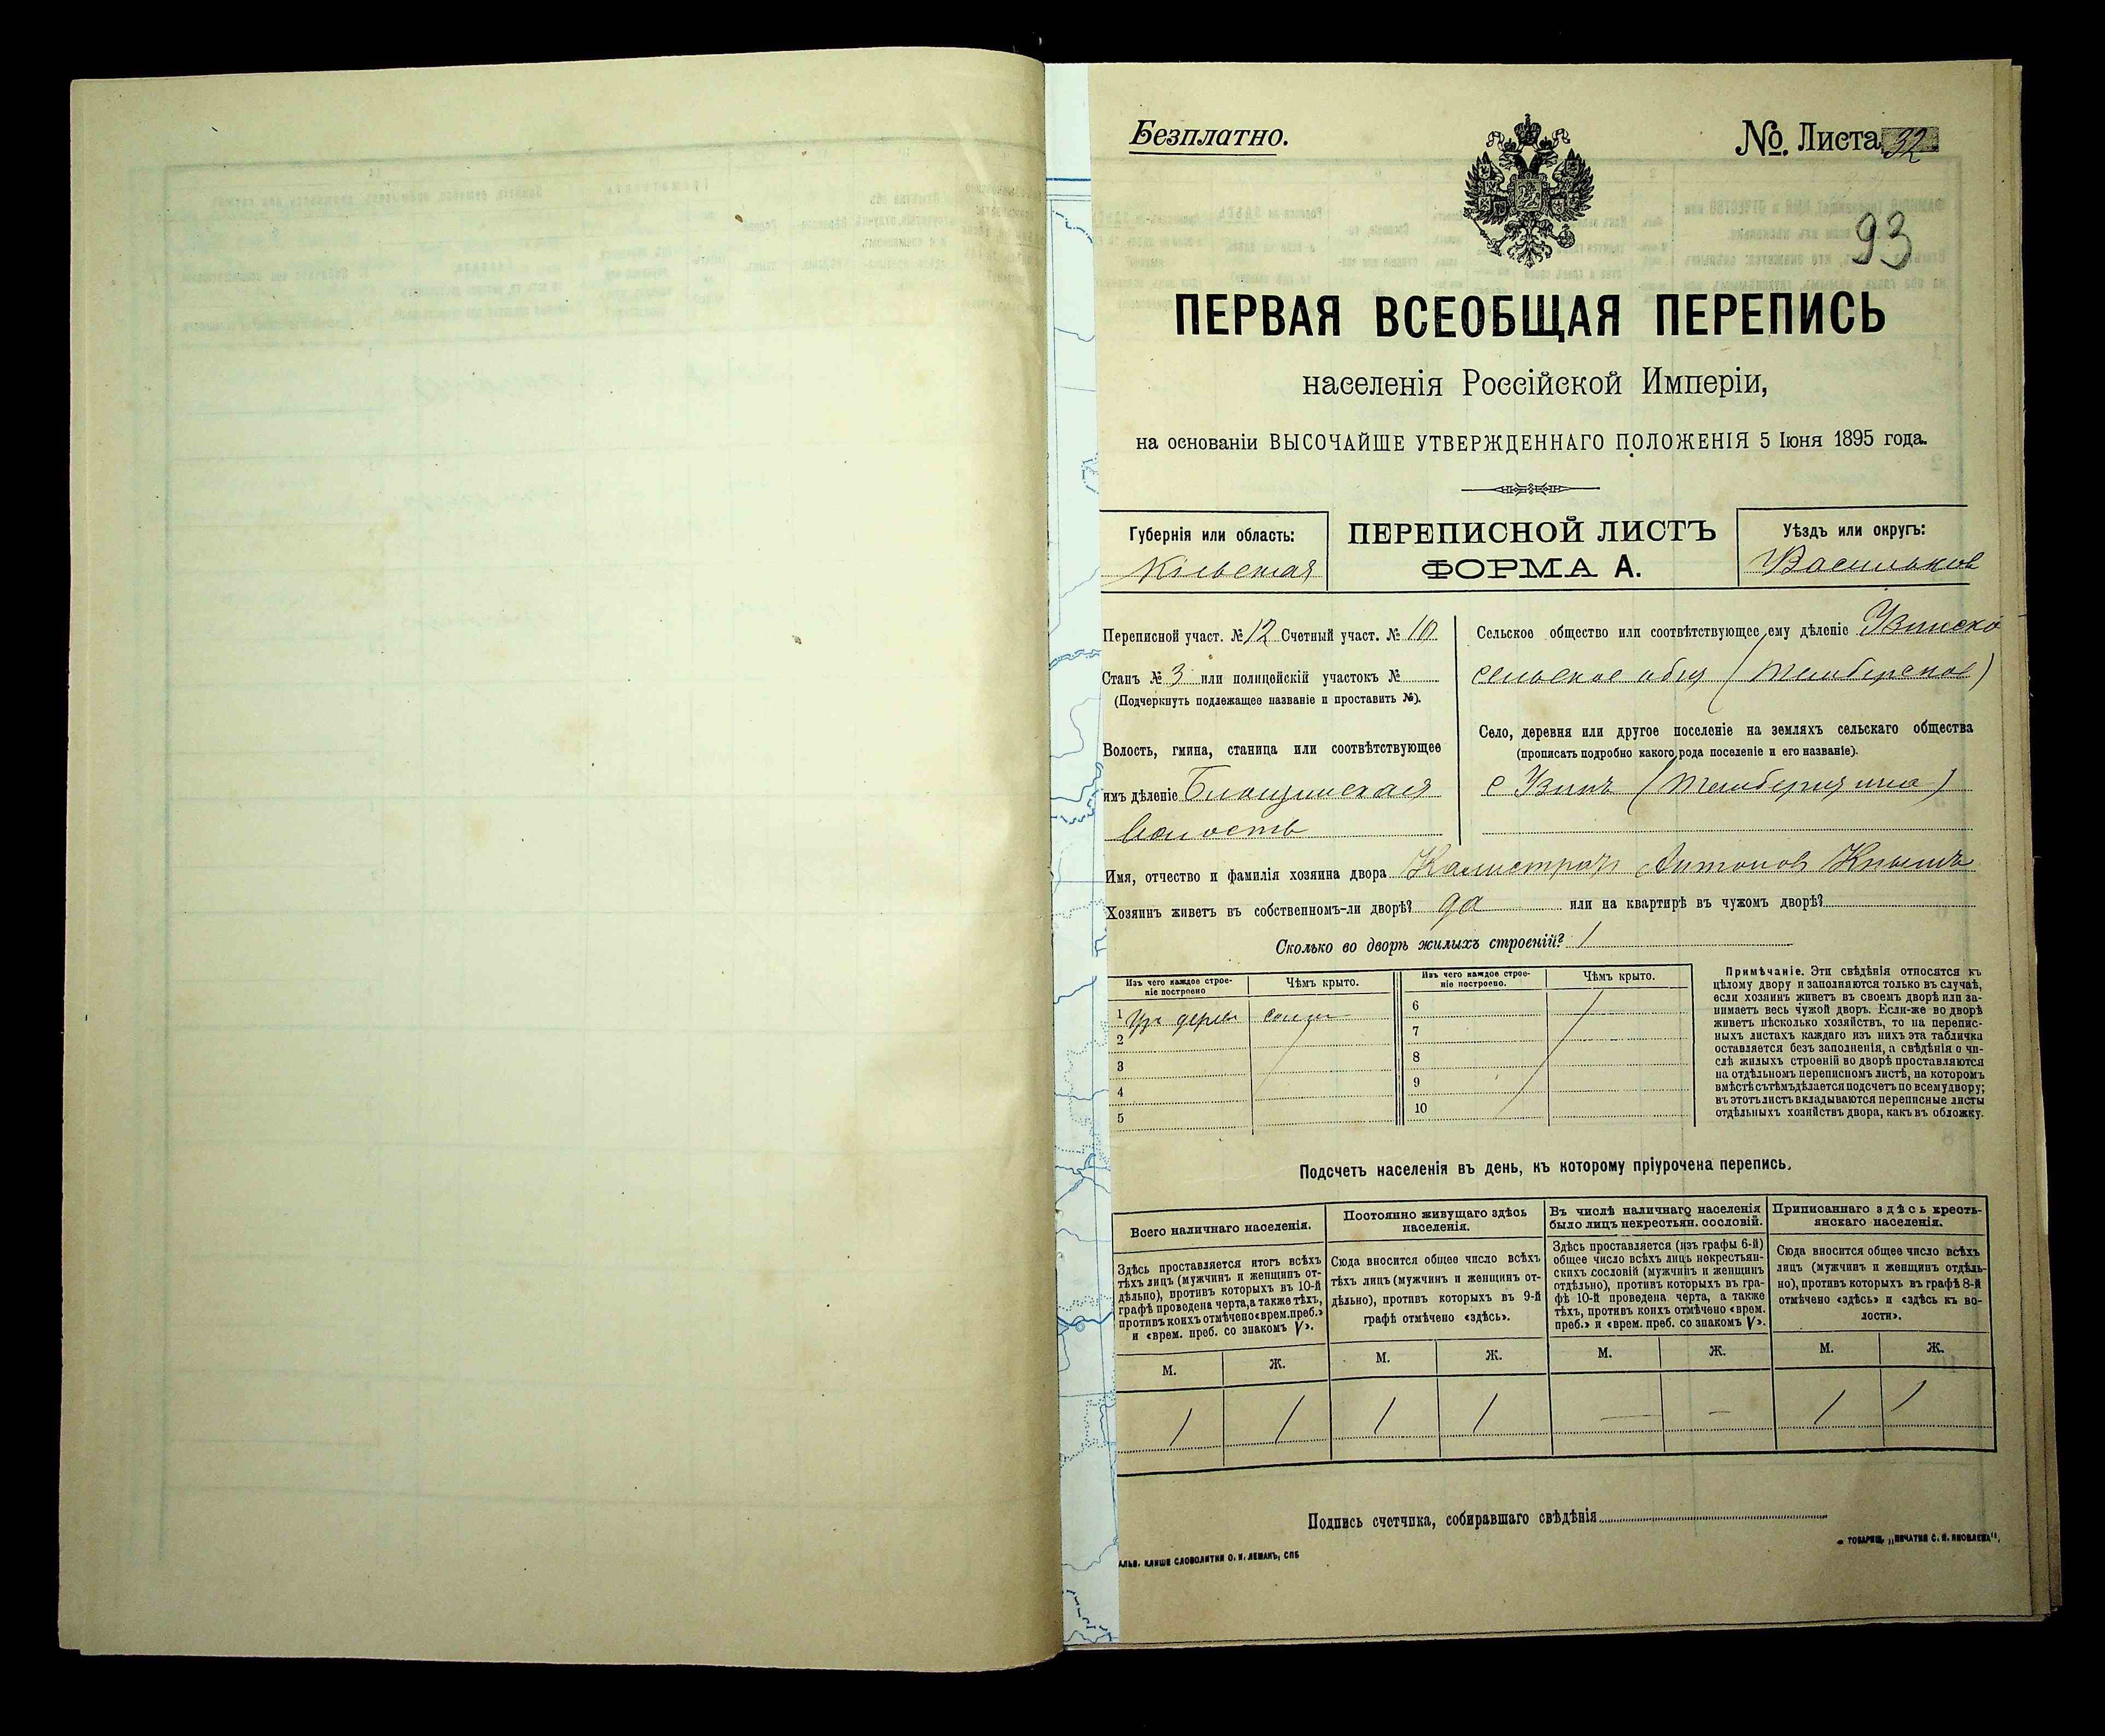 Безплатно.
№ Листа 32
93
ПЕРВАЯ ВСЕОБЩАЯ ПЕРЕПИСЬ
населенія Россійской Имперіи,
на основаніи ВЫСОЧАЙШЕ УТВЕРЖДЕННАГО ПОЛОЖЕНІЯ 5 Іюня 1895 года.
Губернія или область:
Кіевская
ПЕРЕПИСНОЙ ЛИСТЪ
ФОРМА А.
Уѣздъ или округъ:
Васильков
Переписной участ. № 12 Счетный участ. № 10
Станъ № 3 или полицейскій участокъ №
(Подчеркнуть подлежащее названіе и проставить №).
Волость, гмина, станица или соотвѣтствующее
имъ дѣленіе Блощинская
волость
Сельское общество или соотвѣтствующее ему дѣленіе Узинско
сельское общ
Село, деревня или другое поселеніе на земляхъ сельскаго общества
(прописать подробно какого рода поселеніе и его названіе).
с Узинъ
Имя, отчество и фамилія хозяина двора Калистратъ Антонов Кнышъ
Хозяинъ живетъ въ собственномъ-ли дворѣ? да или на квартирѣ въ чужомъ дворѣ?
Сколько во дворѣ жилыхъ строеній? 1
Изъ чего каждое строе-
ніе построено
Чѣмъ крыто.
Изъ чего каждое строе-
ніе построено.
Чѣмъ крыто.
1 Изъ дерев
2
3
4
5
6
7
8
9
10
Примѣчаніе. Эти свѣдѣнія относятся къ
цѣлому двору и заполняются только въ случаѣ,
если хозяинъ живетъ въ своемъ дворѣ или за-
нимаетъ весь чужой дворъ. Если-же во дворѣ
живетъ нѣсколько хозяйствъ, то на перепис-
ныхъ листахъ каждаго изъ нихъ эта табличка
оставляется безъ заполненія, а свѣдѣнія о чи-
слѣ жилыхъ строеній во дворѣ проставляются
на отдѣльномъ переписномъ листѣ, на которомъ
вмѣстѣ съ тѣмъ дѣлается подсчетъ по всему двору;
въ этотъ листъ вкладываются переписные листы
отдѣльныхъ хозяйствъ двора, какъ въ обложку.
Подсчетъ населенія въ день, къ которому пріурочена перепись.
Всего наличнаго населенія.
Здѣсь проставляется итогъ всѣхъ
тѣхъ лицъ (мужчинъ и женщинъ от-
дѣльно), противъ которыхъ въ 10-й
графѣ проведена черта, а также тѣхъ,
противъ коихъ отмѣчено «врем. преб.»
и «врем. преб. со знакомъ V».
Постоянно живущаго здѣсь
населенія.
Сюда вносится общее число всѣхъ
тѣхъ лицъ (мужчинъ и женщинъ от-
дѣльно), противъ которыхъ въ 9-й
графѣ отмѣчено «здѣсь».
Въ числѣ наличнаго населенія
было лицъ некрестьян. сословій.
Здѣсь проставляется (изъ графы 6-й)
общее число всѣхъ лицъ некрестьян-
скихъ сословій (мужчинъ и женщинъ
отдѣльно), противъ которыхъ въ гра-
фѣ 10-й проведена черта, а также
тѣхъ, противъ коихъ отмѣчено «врем.
преб.» и «врем. преб. со знакомъ V».
Приписаннаго здѣсь кресть-
янскаго населенія.
Сюда вносится общее число всѣхъ
лицъ (мужчинъ и женщинъ отдѣль-
но), противъ которыхъ въ графѣ 8-й
отмѣчено «здѣсь» и «здѣсь къ во-
лости».
М. Ж. М. Ж. М. Ж. М. Ж.
1 1 1 1 — — 1 1
Подпись счетчика, собиравшаго свѣдѣнія
АЛЬВ. КЛИШЕ СЛОВОЛИТНИ О. И. ЛЕМАНЪ, СПБ
ТОВАРИЩ. „ПЕЧАТНЯ С. П. ЯКОВЛЕВА“,